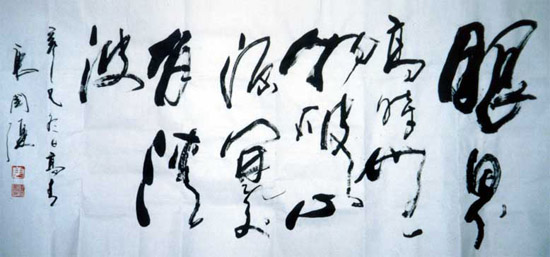 眼界
高時無
物礙心
源開處
有清
波
辛巳於日
国